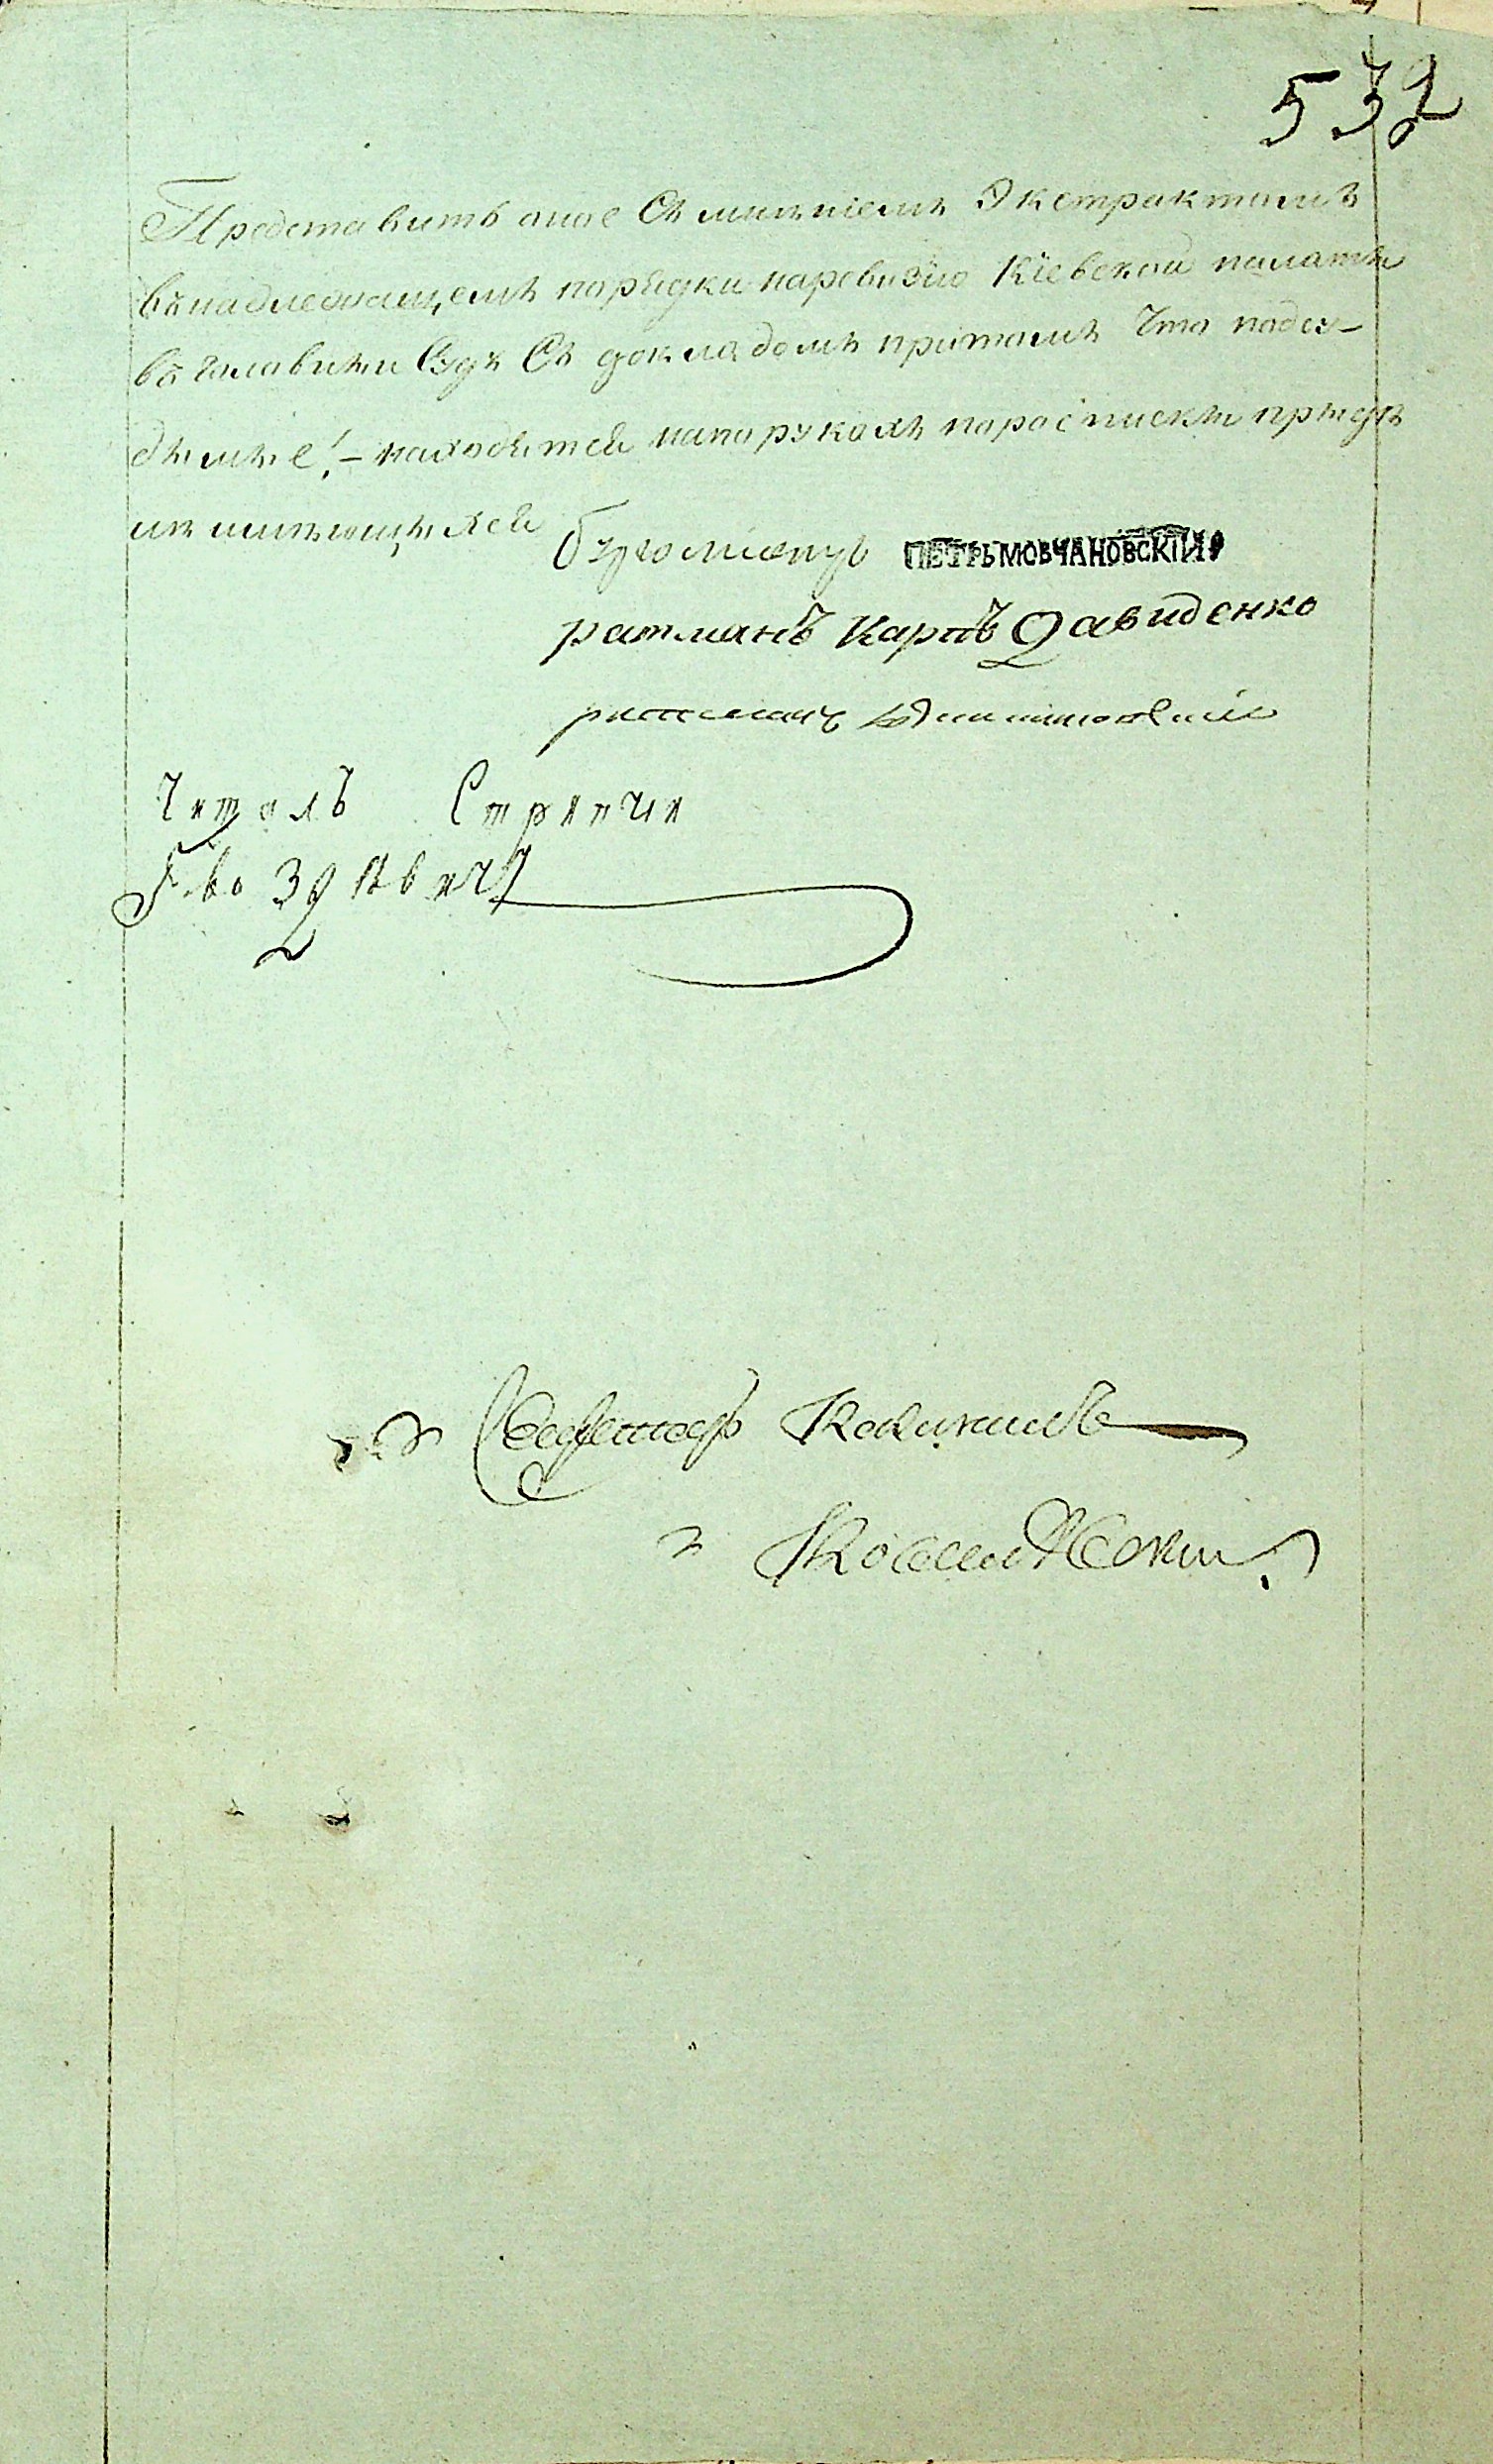 532
Представить оное Съ мнѣніемъ Экстрактомъ
въ надлежащемъ порядки наревизію Кіевской палаты
въ Галавныи Судъ Съ докладомъ притомъ Что подсу-
дымые!- находятся напорукахъ пороспискы прыдъ
имѣющыхся
Бургомистръ ПЕТРЬ МОВЧАНОВСКІЙ
ратманъ Карпъ Давиденко
ратманъ
Читалъ Стряпчи
Секретарь